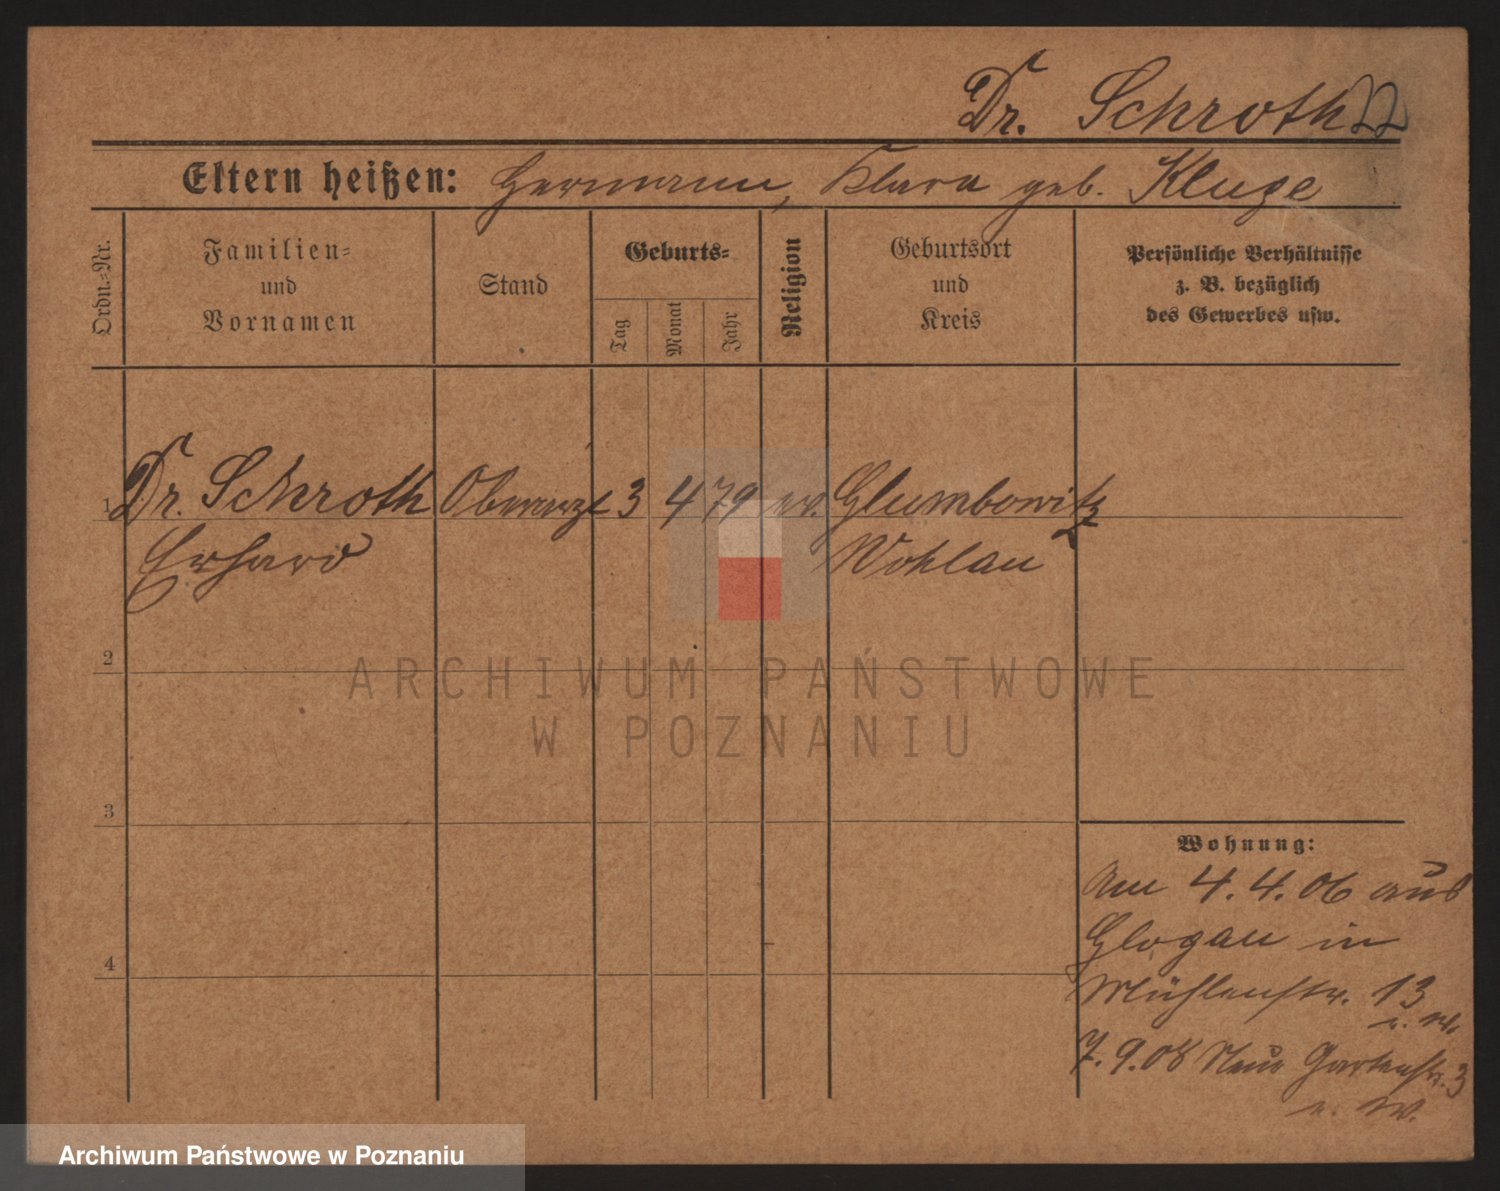 Dr. Schroth 22
Eltern heißen: Hermann, Klara geb. Kluge
Ordn.=Nr.
Familien=
und
Vornamen
Stand
Geburts=
Tag
Monat
Jahr
Religion
Geburtsort
und
Kreis
Persönliche Verhältnisse
z. B. bezüglich
des Gewerbes usw.
1 Dr. Schroth Oberarzt 3 4 79 ev. Glumbowitz
Erhard Wohlau
2
3
4
Wohnung:
Am 4.4.06 aus
Glogau in
Mühlenstr. 13
7.9.08 Neue Gartenstr. 3
ARCHIWUM PAŃSTWOWE
W POZNANIU
Archiwum Państwowe w Poznaniu